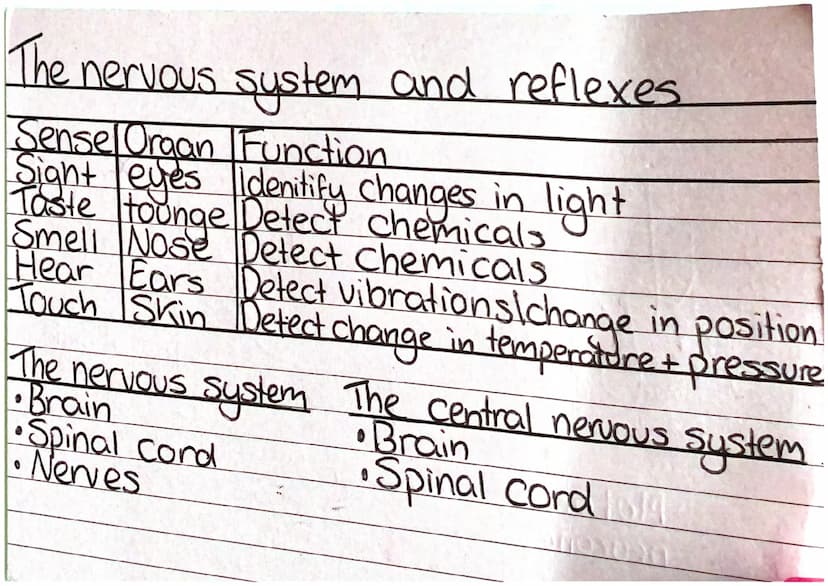 The nervous system and reflexes
Sense Organ Function
Sight eyes Idenitify changes in light
Taste tounge Detect chemicals
Smell Nose Detect chemicals
Hear Ears Detect vibrations\change in position
Touch Skin Detect change in temperature + pressure
The nervous system
• Brain
• Spinal cord
• Nerves
The central nervous system
• Brain
• Spinal cord